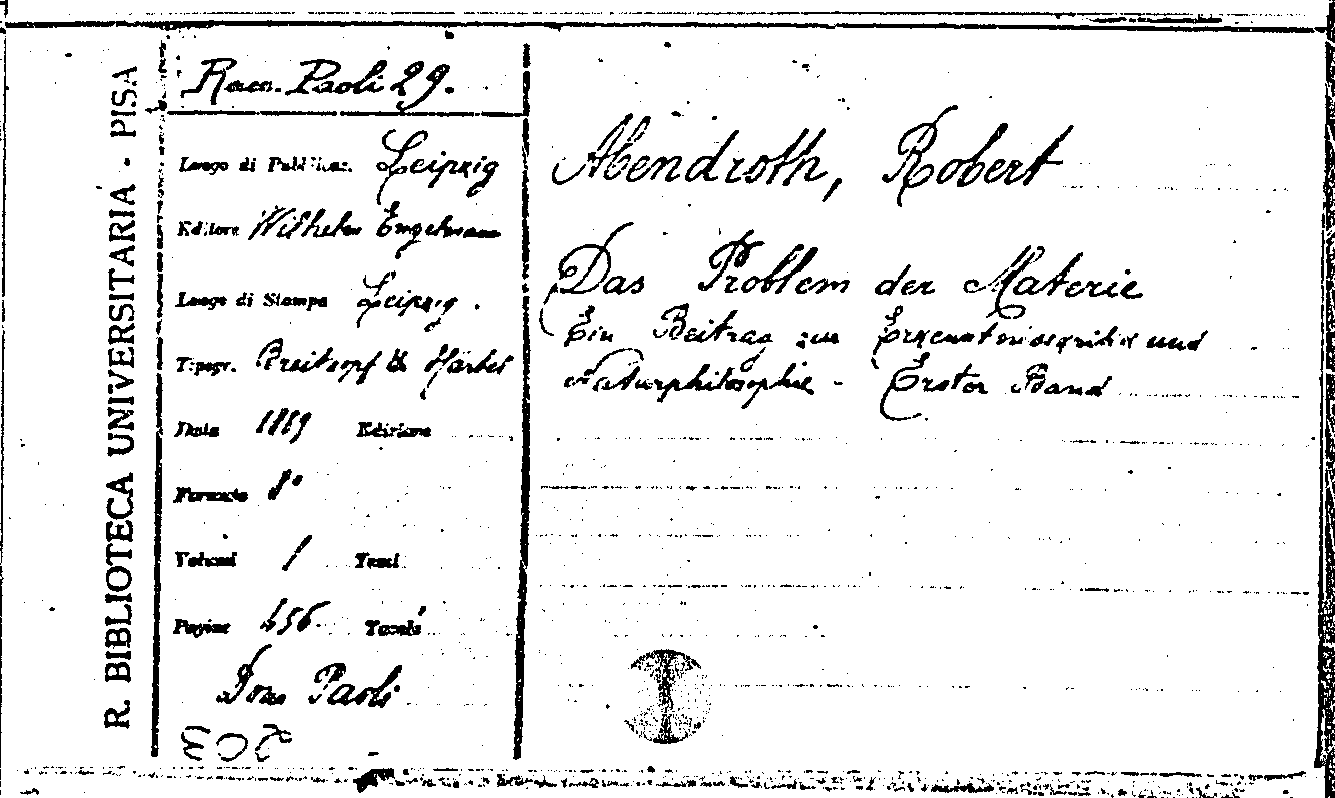 R. BIBLIOTECA UNIVERSITARIA - PISA
Racc. Paoli 29.
Luogo di Pubblicaz. Leipzig
Editore Wilhelm Engelmann
Luogo di Stampa Leipzig.
Tipogr. Breitkopf & Härtel
Data 1889 Edizione
Formato 8°
Volumi 1 Tomi
Pagine 456 Tavole
Dono Paoli
Abendroth, Robert
Das Problem der Materie
Ein Beitrag zur Erkenntniskritik und
Naturphilosophie - Erster Band